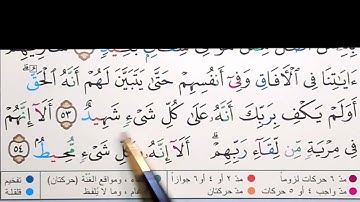 ءَايَٰتِنَا فِي ٱلۡأٓفَاقِ وَفِيٓ أَنفُسِهِمۡ حَتَّىٰ يَتَبَيَّنَ لَهُمۡ أَنَّهُ ٱلۡحَقُّۗ
أَوَلَمۡ يَكۡفِ بِرَبِّكَ أَنَّهُۥ عَلَىٰ كُلِّ شَيۡءٖ شَهِيدٌ ٥٣ أَلَآ إِنَّهُمۡ
فِي مِرۡيَةٖ مِّن لِّقَآءِ رَبِّهِمۡۗ أَلَآ إِنَّهُۥ كُلِّ شَيۡءٖ مُّحِيطُۢ ٥٤
مدّ ٦ حركات لزوماً مدّ ٢ أو ٤ أو ٦ جوازاً ، ومواقع الغُنَّة (حركتان) تفخيم
مدّ واجب ٤ أو ٥ حركات مدّ حركتان ، وما لا يُلفَظ قلقلة